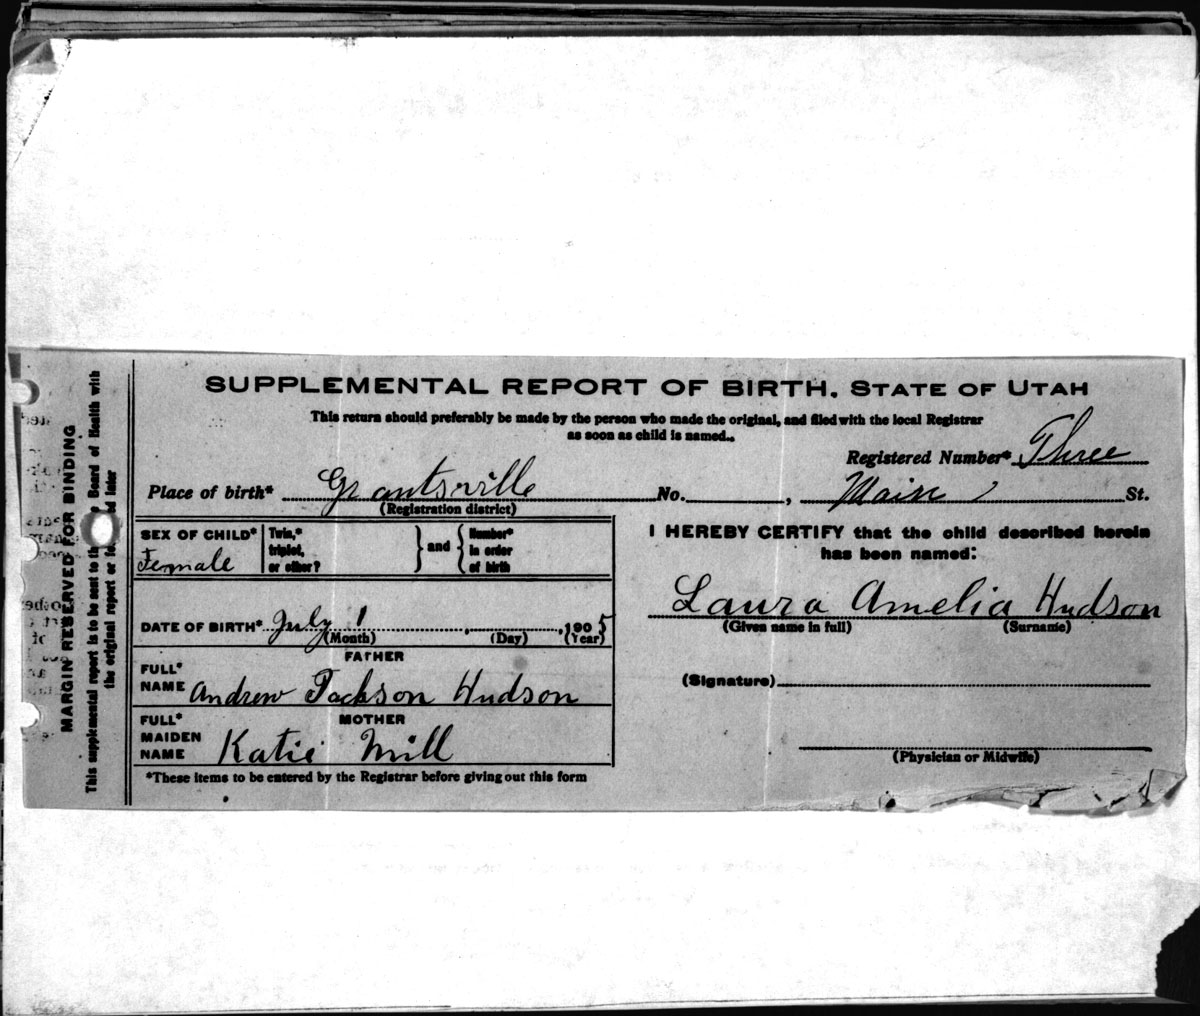 SUPPLEMENTAL REPORT OF BIRTH. STATE OF UTAH
This return should preferably be made by the person who made the original, and filed with the local Registrar
as soon as child is named.
Registered Number* Three
Place of birth* Grantsville No. , Main St.
(Registration district)
SEX OF CHILD* Female
Twin,* triplet, or other?
and
Number* in order of birth
DATE OF BIRTH* July 1 , , 1905
(Month) (Day) (Year)
FATHER
FULL* NAME Andrew Jackson Hudson
MOTHER
FULL* MAIDEN NAME Katie Mill
*These items to be entered by the Registrar before giving out this form
I HEREBY CERTIFY that the child described herein
has been named:
Laura Amelia Hudson
(Given name in full) (Surname)
(Signature)
(Physician or Midwife)
MARGIN RESERVED FOR BINDING
This supplemental report is to be sent to the Board of Health with
the original report or later